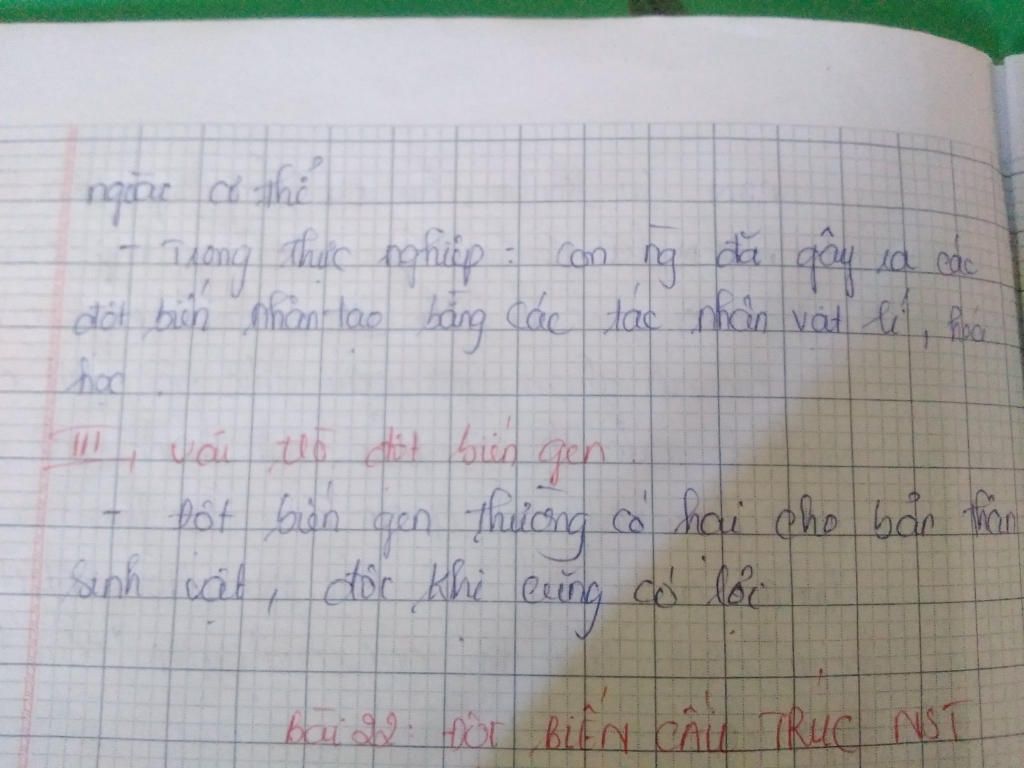 ngoài cơ thể
- Trong thực nghiệp : con ng̅ đã gây ra các
đột biến nhân tạo bằng các tác nhân vật lí, hoá
học.
III, vai trò đột biến gen.
- Đột biến gen thường có hại cho bản thân
sinh vật, đôi khi cũng có lợi
Bài 22: ĐỘT BIẾN CẤU TRÚC NST